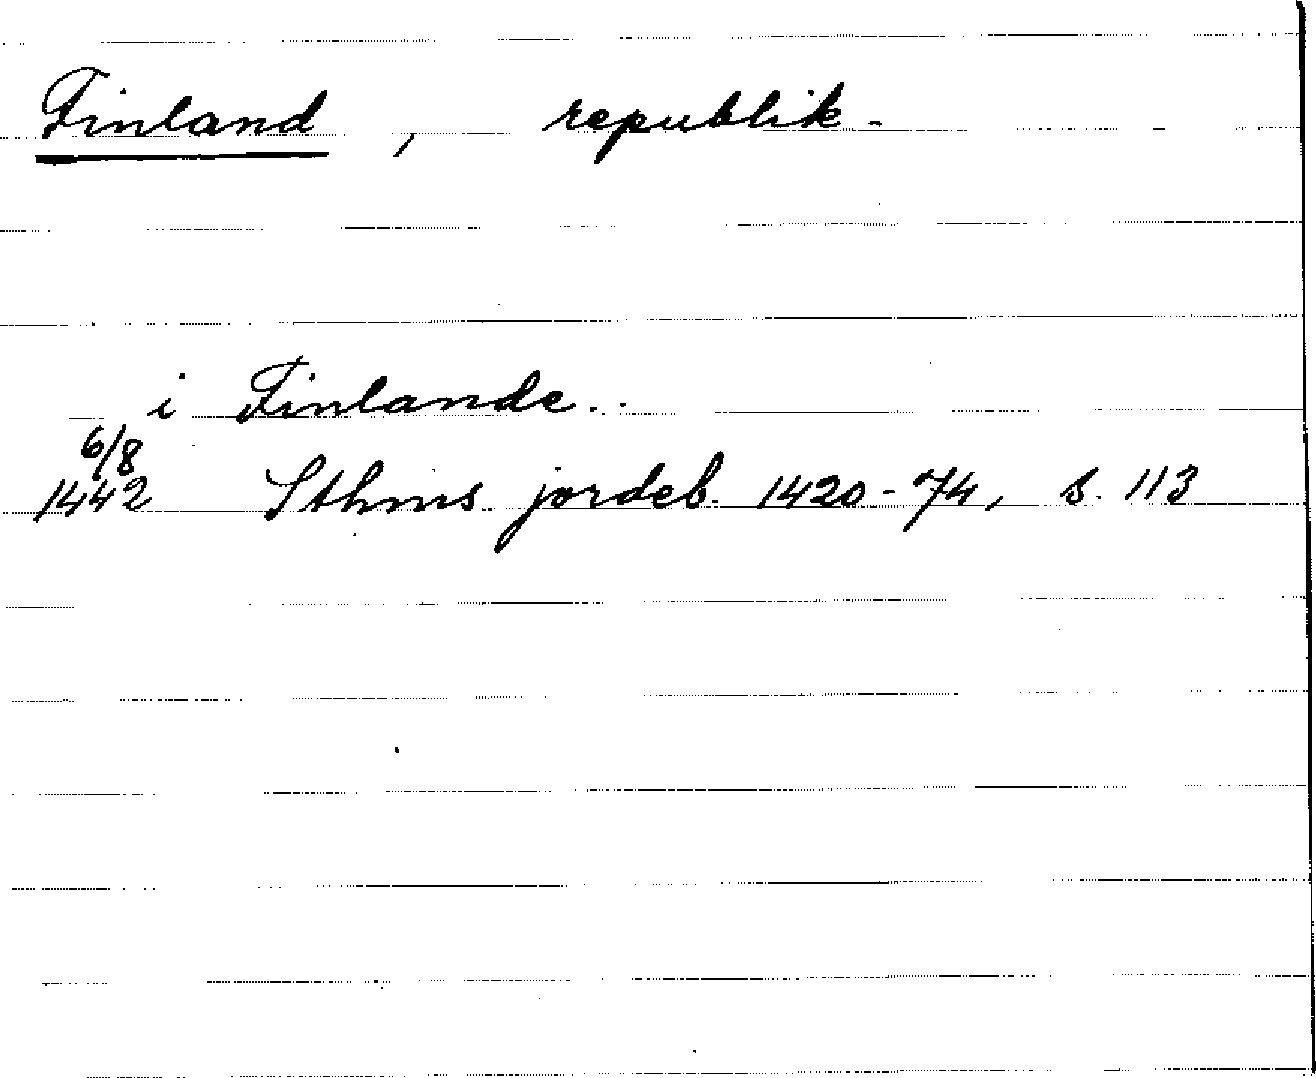 Finland, republik.
i Finlande..
6/8
1442 Sthms jordeb. 1420-74, s. 113